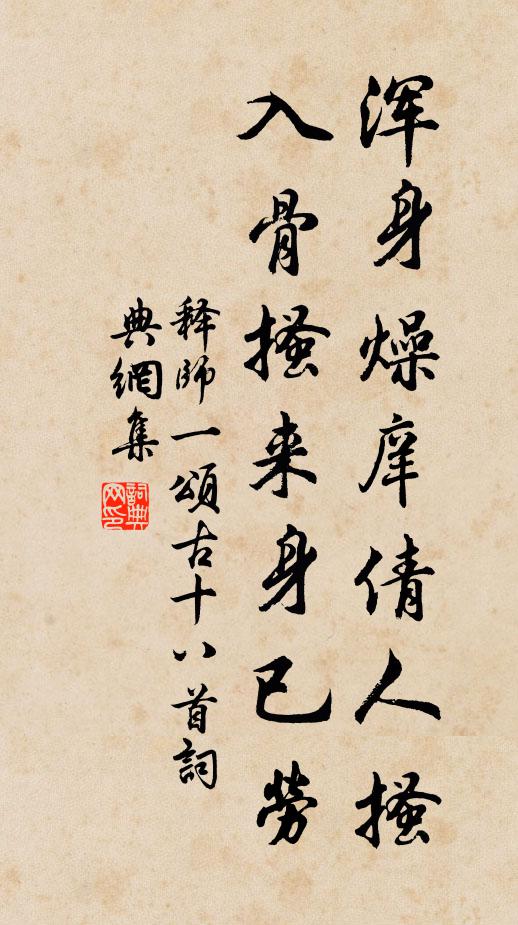 浑身燥庠倩人搔
入骨搔来身已劳
释师一頌古十八首詞
典網集
詞典网印